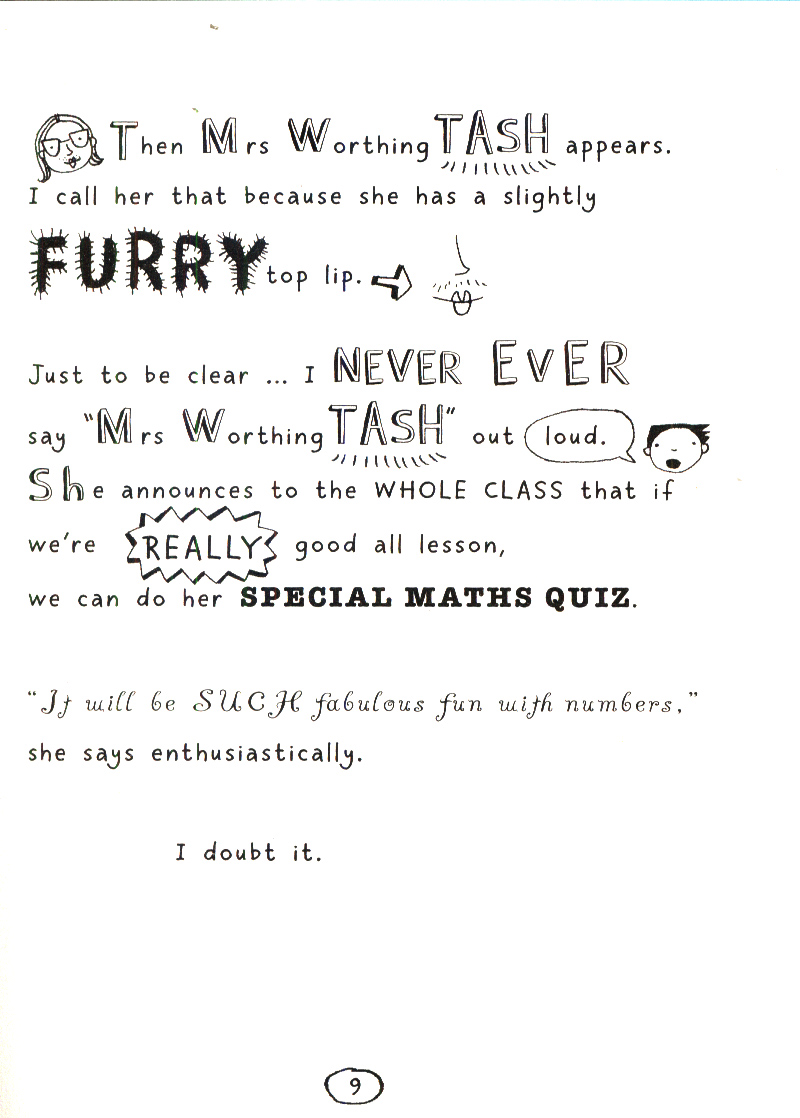 Then Mrs WorthingTASH appears.
I call her that because she has a slightly
FURRY top lip.
Just to be clear ... I NEVER EVER
say "Mrs WorthingTASH" out loud.
She announces to the WHOLE CLASS that if
we're REALLY good all lesson,
we can do her SPECIAL MATHS QUIZ.
"It will be SUCH fabulous fun with numbers,"
she says enthusiastically.
I doubt it.
9